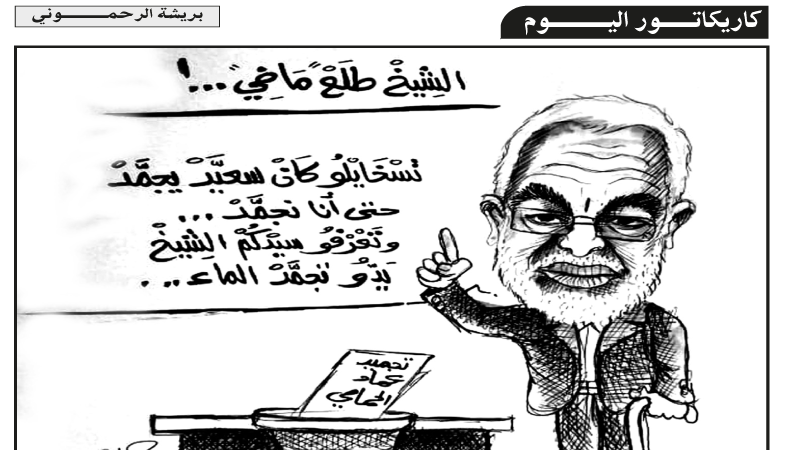 كاريكاتور اليوم
بريشة الرحموني
الشِيخْ طلَعْ "مَاضِي"...!
تسْخَايْلُو كَانْ سعيَّدْ يجمَّدْ
حتى أنا نجمَّدْ ...
وتَعْرْفُو سيدْكُمْ الشِيخْ
يَدُّو تجمَّدْ الماء...
تجميد
عماد
الحمامي